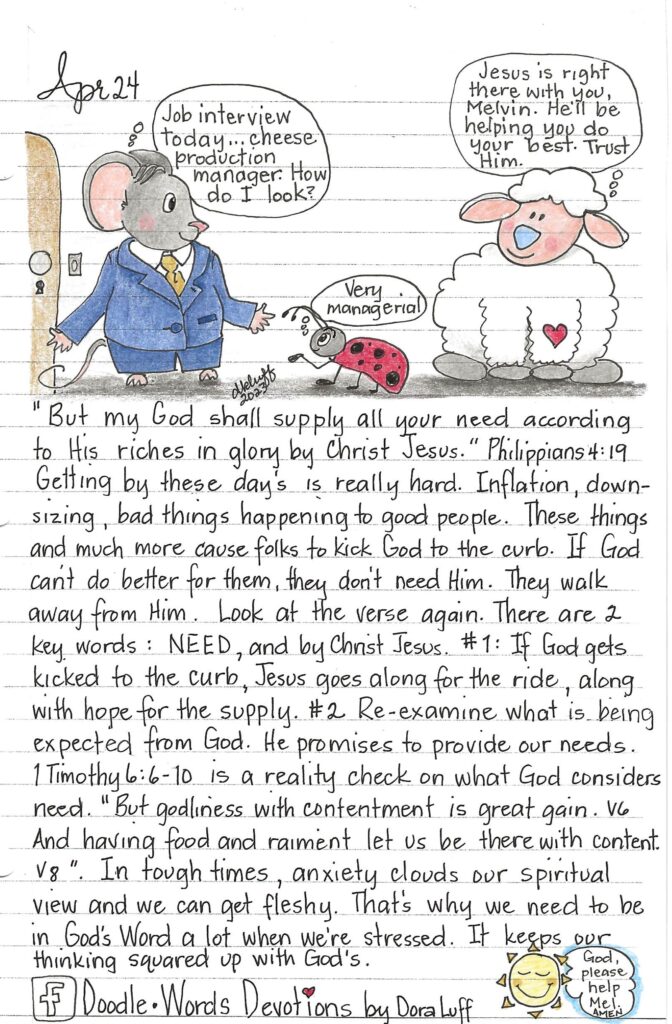 Apr 24
Job interview
today... cheese
production
manager. How
do I look?
Jesus is right
there with you,
Melvin. He'll be
helping you do
your best. Trust
Him.
Very
managerial
DoraLuff
2023
"But my God shall supply all your need according
to His riches in glory by Christ Jesus." Philippians 4:19
Getting by these day's is really hard. Inflation, down-
sizing, bad things happening to good people. These things
and much more cause folks to kick God to the curb. If God
can't do better for them, they don't need Him. They walk
away from Him. Look at the verse again. There are 2
key words: NEED, and by Christ Jesus. #1: If God gets
kicked to the curb, Jesus goes along for the ride, along
with hope for the supply. #2 Re-examine what is being
expected from God. He promises to provide our needs.
1 Timothy 6:6-10 is a reality check on what God considers
need. "But godliness with contentment is great gain. v6
And having food and raiment let us be there with content.
v8". In tough times, anxiety clouds our spiritual
view and we can get fleshy. That's why we need to be
in God's Word a lot when we're stressed. It keeps our
thinking squared up with God's.
God,
please
help
Me!
AMEN
f Doodle•Words Devotions by Dora Luff